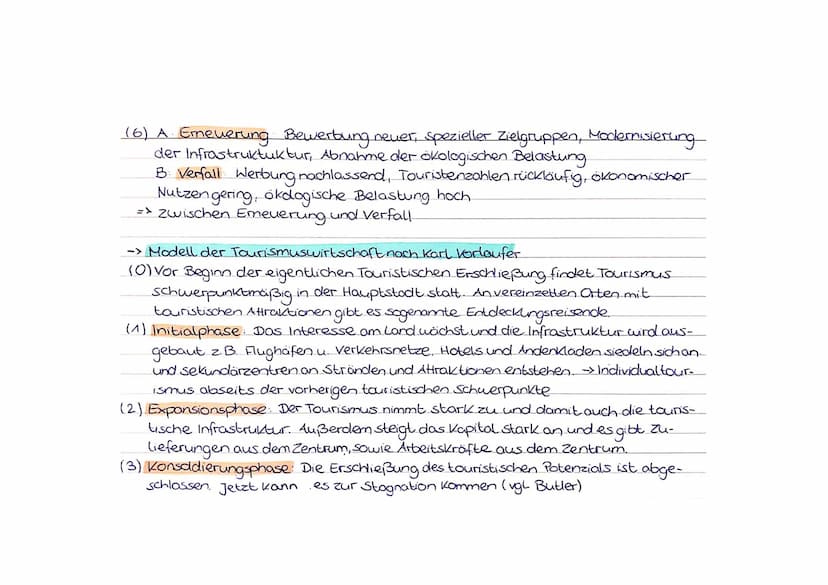 (6) A: Erneuerung: Bewerbung neuer, spezieller Zielgruppen, Modernisierung
der Infrastruktuktur, Abnahme der ökologischen Belastung
B: Verfall: Werbung nachlassend, Touristenzahlen rückläufig, ökonomischer
Nutzen gering, ökologische Belastung hoch
=> zwischen Erneuerung und Verfall
-> Modell der Tourismuswirtschaft nach Karl Vorlaufer
(0) Vor Beginn der eigentlichen Touristischen Erschließung findet Tourismus
schwerpunktmäßig in der Hauptstadt statt. An vereinzelten Orten mit
touristischen Attraktionen gibt es sogenannte Entdeckungsreisende.
(1) Initialphase: Das Interesse am Land wächst und die Infrastruktur wird aus-
gebaut z.B. Flughäfen u. Verkehrsnetze, Hotels und Andenkläden siedeln sich an
und sekundärzentren an Stränden und Attraktionen entstehen. -> Individualtour-
ismus abseits der vorherigen touristischen Schwerpunkte
(2) Expansionsphase: Der Tourismus nimmt stark zu und damit auch die touris-
tische Infrastruktur. Außerdem steigt das Kapital stark an und es gibt Zu-
lieferungen aus dem Zentrum, sowie Arbeitskräfte aus dem Zentrum.
(3) Konsolidierungsphase: Die Erschließung des touristischen Potenzials ist abge-
schlossen. Jetzt kann es zur Stagnation kommen (vgl. Butler)